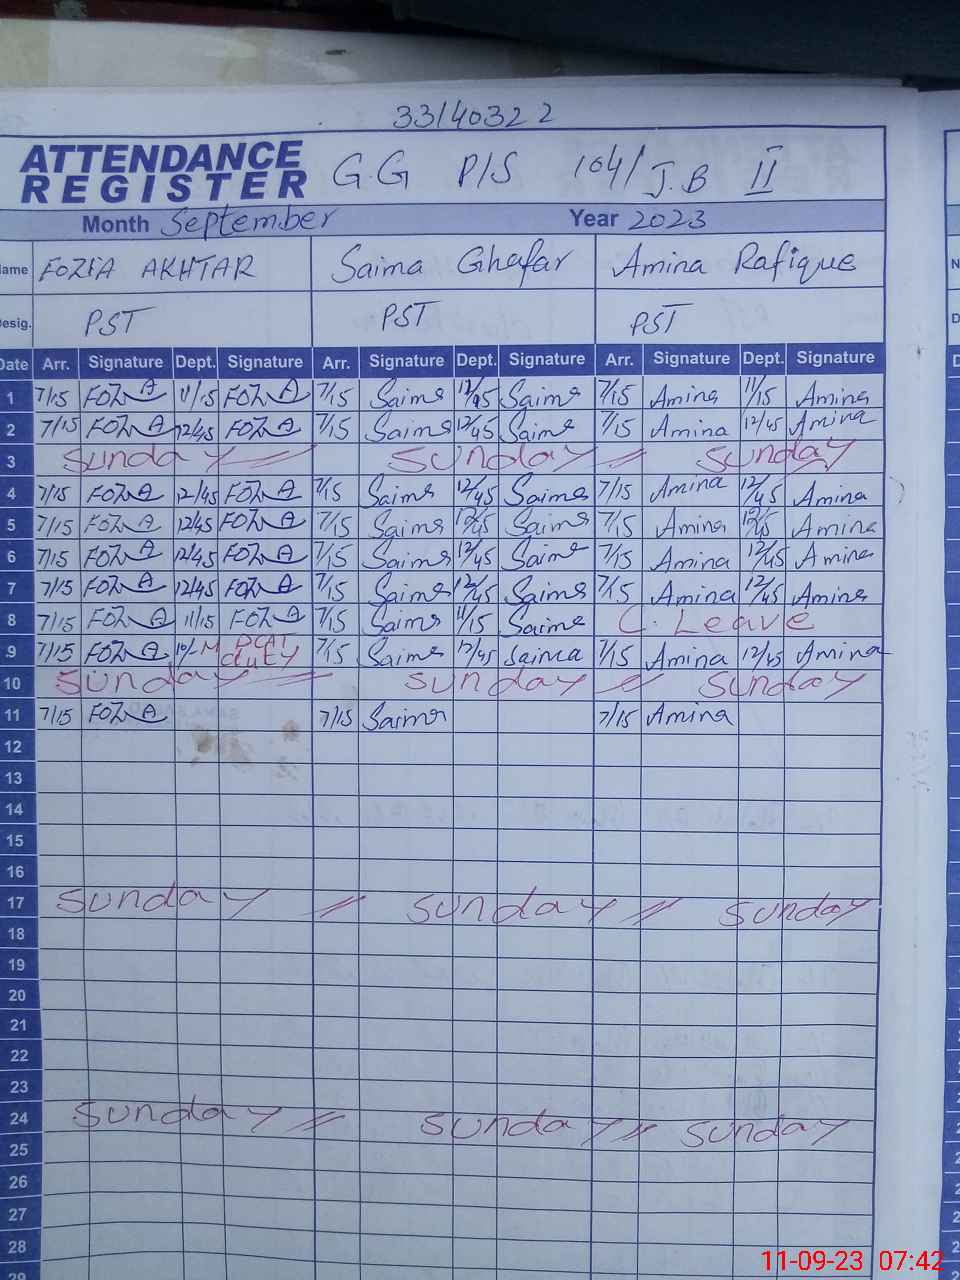 33140322
ATTENDANCE REGISTER G.G P/S 104/J.B II
Month September Year 2023
Name FOZIA AKHTAR Saima Ghafar Amina Rafique
Desig. PST PST PST
Date Arr. Signature Dept. Signature Arr. Signature Dept. Signature Arr. Signature Dept. Signature
1 7/15 FOZIA 11/15 FOZIA 7/15 Saima 12/45 Saima 7/15 Amina 11/15 Amina
2 7/15 FOZIA 12/45 FOZIA 7/15 Saima 12/45 Saima 7/15 Amina 12/45 Amina
3 Sunday Sunday Sunday
4 7/15 FOZIA 12/45 FOZIA 7/15 Saima 12/45 Saima 7/15 Amina 12/45 Amina
5 7/15 FOZIA 12/45 FOZIA 7/15 Saima 12/45 Saima 7/15 Amina 12/45 Amina
6 7/15 FOZIA 12/45 FOZIA 7/15 Saima 12/45 Saima 7/15 Amina 12/45 Amina
7 7/15 FOZIA 12/45 FOZIA 7/15 Saima 12/45 Saima 7/15 Amina 12/45 Amina
8 7/15 FOZIA 11/15 FOZIA 7/15 Saima 11/15 Saima C. Leave
9 7/15 FOZIA duty 7/15 Saima 12/45 Saima 7/15 Amina 12/45 Amina
10 Sunday Sunday Sunday
11 7/15 FOZIA 7/15 Saima 7/15 Amina
12
13
14
15
16
17 Sunday Sunday Sunday
18
19
20
21
22
23
24 Sunday Sunday Sunday
25
26
27
28
29
11-09-23 07:42